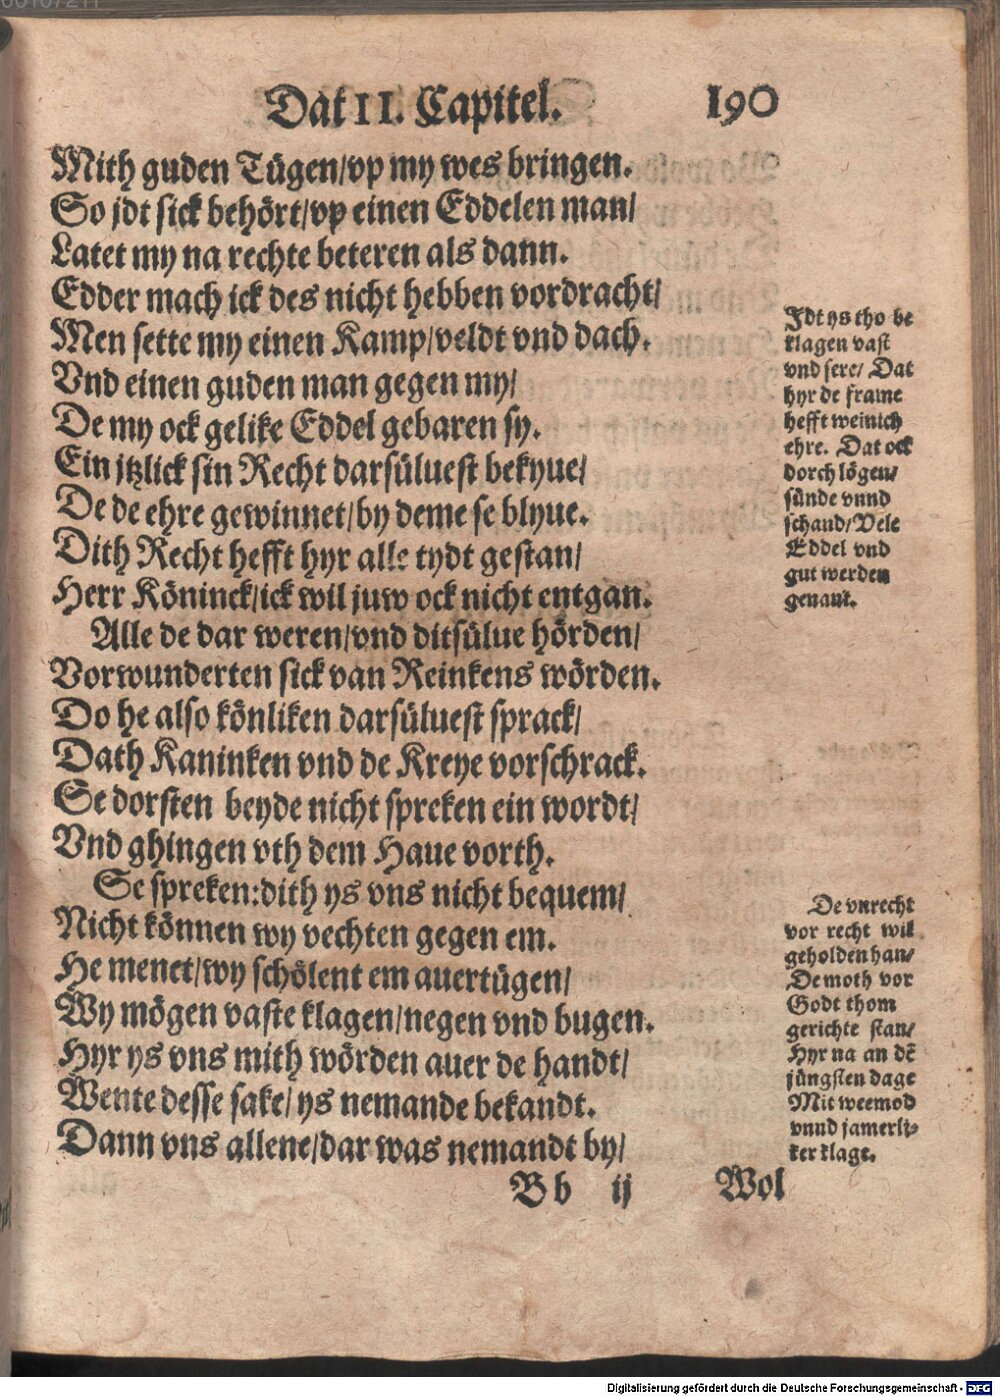 Dat II. Capitel. 190
Mith guden Tügen/vp my wes bringen.
So jdt sick behört/vp einen Eddelen man/
Latet my na rechte beteren als dann.
Edder mach ick des nicht hebben vordracht/
Men sette my einen Kamp/veldt vnd dach.
Vnd einen guden man gegen my/
De my ock gelike Eddel gebaren sy.
Ein jtzlick sin Recht darsüluest bekyue/
De de ehre gewinnet/by deme se blyue.
Dith Recht hefft hyr alle tydt gestan/
Herr Köninck/ick wil juw ock nicht entgan.
Alle de dar weren/vnd ditsülue hörden/
Vorwunderten sick van Reinkens wörden.
Do he also könliken darsüluest sprack/
Dath Kaninken vnd de Kreye vorschrack.
Se dorsten beyde nicht spreken ein wordt/
Vnd ghingen vth dem Haue vorth.
Se spreken:dith ys vns nicht bequem/
Nicht können wy vechten gegen em.
He menet/wy schölent em auertügen/
Wy mögen vaste klagen/negen vnd bugen.
Hyr ys vns mith wörden auer de handt/
Wente desse sake/ys nemande bekandt.
Dann vns allene/dar was nemandt by/
Bb ij Wol
Jdt ys tho be
klagen vast
vnd sere/ Dat
hyr de frame
hefft weinich
ehre. Dat ock
dorch lögen/
sünde vnnd
schand/Vele
Eddel vnd
gut werden
genant.
De vnrecht
vor recht wil
geholden han/
De moth vor
Godt thom
gerichte stan/
Hyr na an dē
jüngsten dage
Mit weemod
vnnd jamerli-
ker klage.
Digitalisierung gefördert durch die Deutsche Forschungsgemeinschaft - DFG